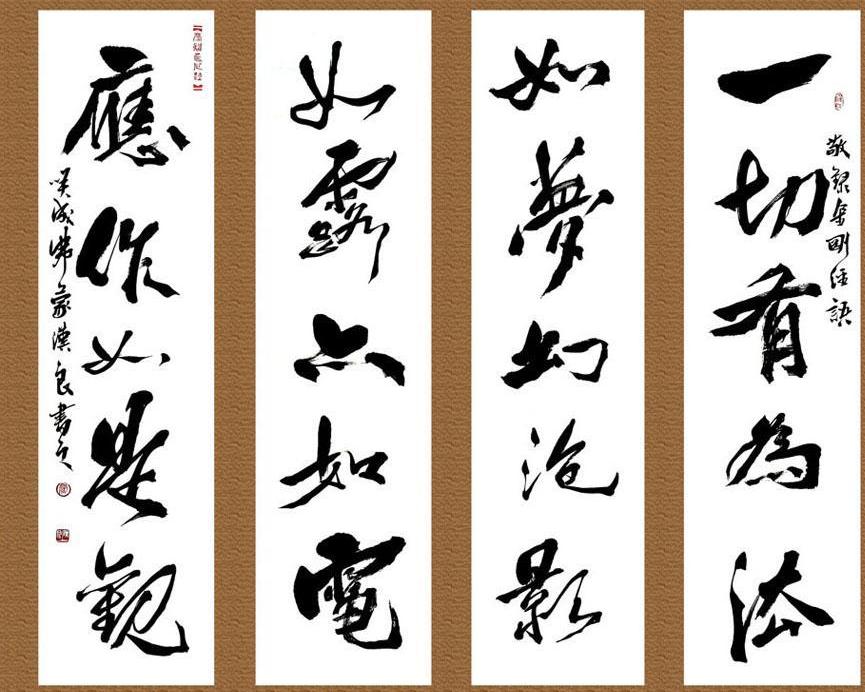 敬錄金剛經語
一切有為法
如夢幻泡影
如露亦如電
應作如是觀
漢良書之